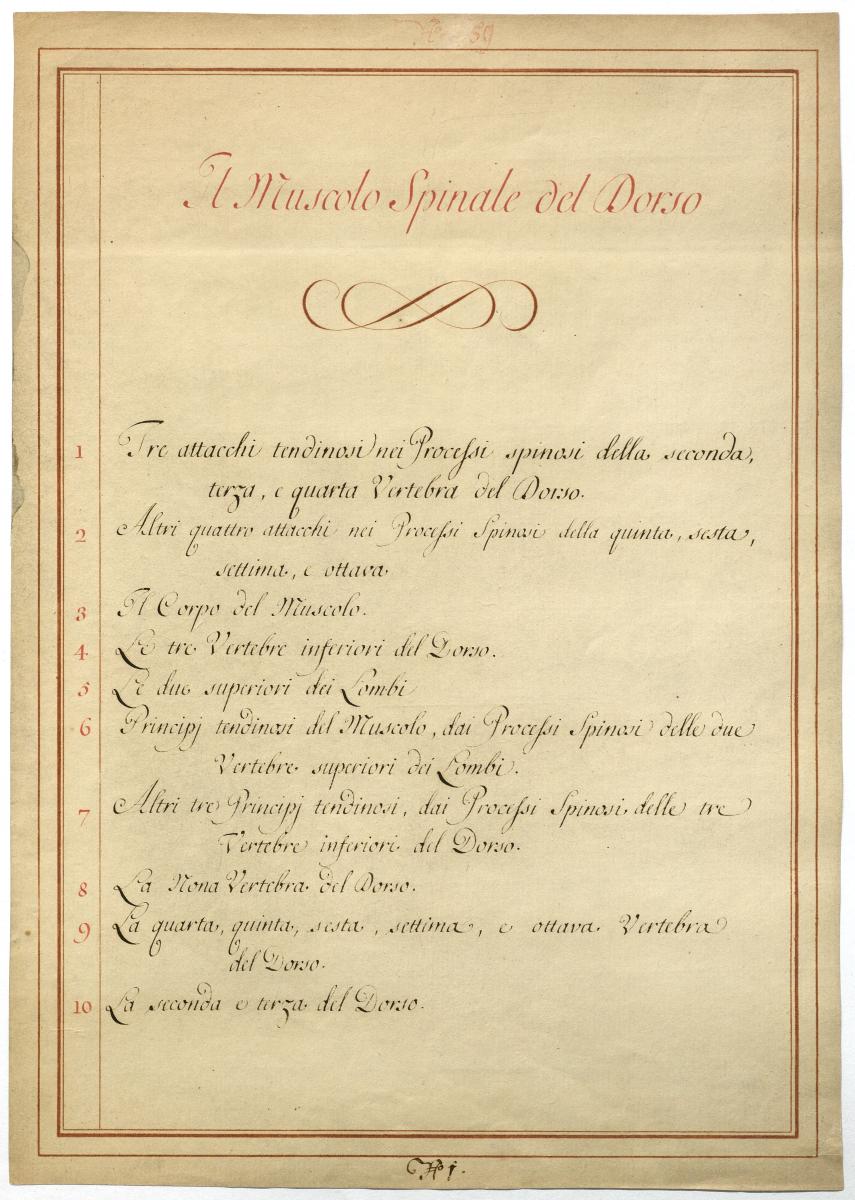 59
Il Muscolo Spinale del Dorso
1 Tre attacchi tendinosi nei Processi spinosi della seconda,
terza, e quarta Vertebra del Dorso.
2 Altri quattro attacchi nei Processi Spinosi della quinta, sesta,
settima, e ottava
3 Il Corpo del Muscolo.
4 Le tre Vertebre inferiori del Dorso.
5 Le due superiori dei Lombi
6 Principj tendinosi del Muscolo, dai Processi Spinosi delle due
Vertebre superiori dei Lombi.
7 Altri tre Principj tendinosi, dai Processi Spinosi delle tre
Vertebre inferiori del Dorso.
8 La Nona Vertebra del Dorso.
9 La quarta, quinta, sesta, settima, e ottava Vertebra
del Dorso.
10 La seconda e terza del Dorso.